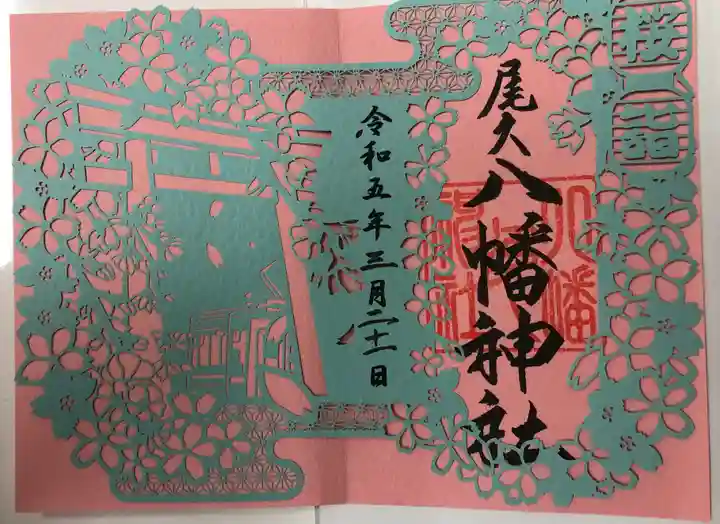 尾久八幡神社
令和五年三月二十一日